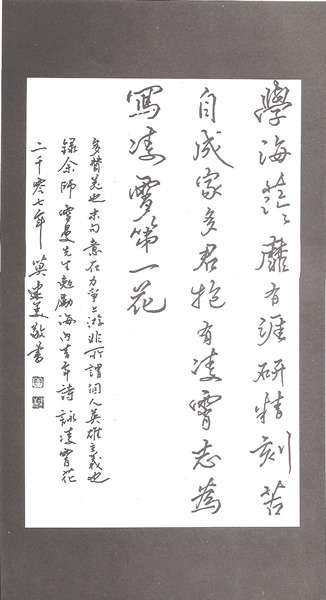 學海茫茫靡有涯研精刻苦
自成家多君抱有凌霄志為
寫凌霄第一花
多贊美也末句意在力爭上游非所謂個人英雄主義也
錄余師雪曼先生勉勵海內青年詩詠凌霄花
二千零七年 莫 美敬書